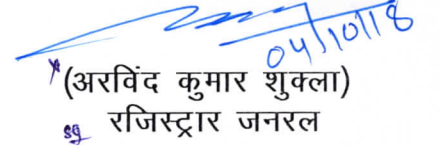 04/10/18
(अरविंद कुमार शुक्ला)
रजिस्ट्रार जनरल